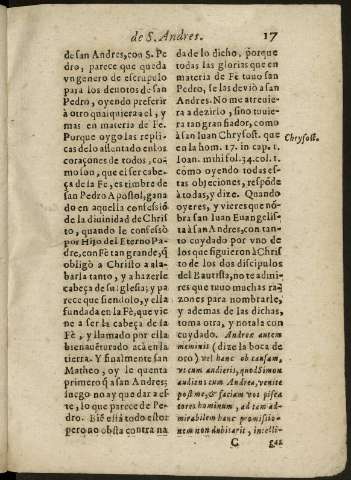 de S. Andres. 17
de san Andres, con S. Pe
dro, parece que queda
vn genero de escrupulo
para los deuotos de san
Pedro, oyendo preferir
à otro qualquiera a el, y
mas en materia de Fe.
Porque oygo las repli-
cas de lo assentado en los
coraçones de todos, co-
mo son, que el ser cabe-
ça de la Fe, es timbre de
san Pedro Apostol, gana
do en aquella confessiõ
de la diuinidad de Chris
to, quando le confessò
por Hijo del Eterno Pa-
dre, con Fè tan grande, q̃
obligò a Christo a ala-
barla tanto, y a hazerle
cabeça de su Iglesia; y pa
rece que siendolo, y ella
fundada en la Fè, que vie
ne a ser la cabeça de la
Fè, y llamado por ella
bienauẽturado acà en la
tierra. Y finalmente san
Matheo, oy le quenta
primero q̃ a san Andres;
luego no ay que dar a es-
te, lo que parece de Pe-
dro. Biẽ està todo esto;
pero no obsta contra na
da de lo dicho, porque
todas las glorias que en
materia de Fè tuuo san
Pedro, se las deuiò a san
Andres. No me atreuie-
ra a dezirlo, sino tuuie-
ra tan gran fiador, como
à san Iuan Chrysost. que
en la hom. 17. in cap. 1.
Ioan. mihi fol. 34. col. 1.
como oyendo todas es-
tas objeciones, respõde
à todas, y dize. Quando
oyeres, y vieres que nõ-
bra san Iuan Euangelis-
ta à san Andres, con tan-
to cuydado por vno de
los que siguieron à Chris
to de los dos discipulos
del Bautista, no te admi-
res que tuuo muchas ra-
zones para nombrarle,
y ademas de las dichas,
toma otra, y notala con
cuydado. Andræ autem
meminis (dize la boca de
oro) vel hanc ob causam,
vt cum audieris, quod Simon
audiens cum Andrea, venite
post me, & faciam vos pisca
tores hominum, ad tam ad-
mirabilem hanc promissio-
nem non dubitarit, intelli-
Chrysost.
C gas